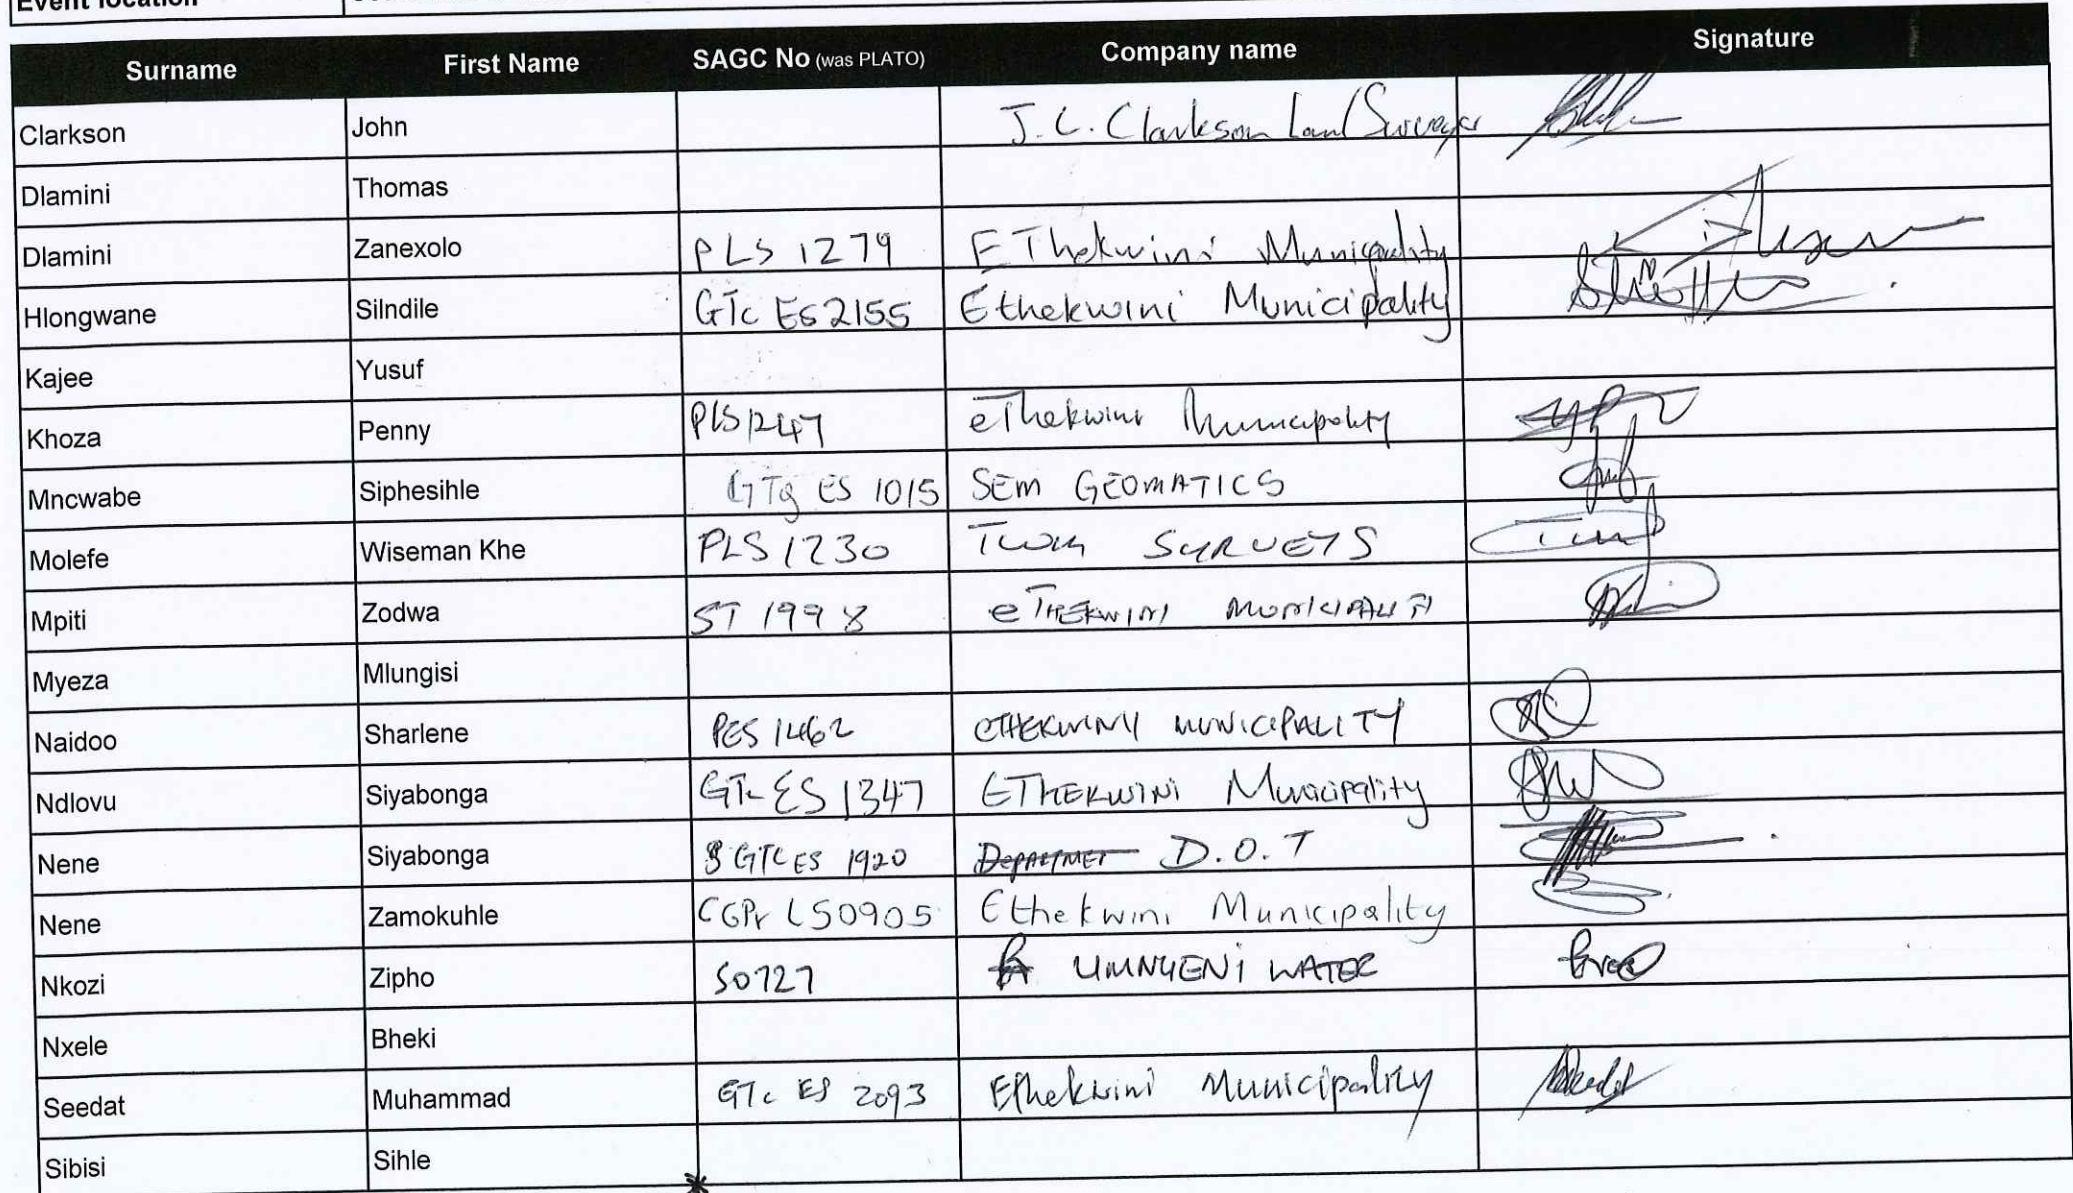 Event location
Surname First Name SAGC No (was PLATO) Company name Signature
Clarkson John J. C. Clarkson Land Surveyor
Dlamini Thomas
Dlamini Zanexolo PLS 1279 EThekwini Municipality
Hlongwane Silndile GTc ES 2155 Ethekwini Municipality
Kajee Yusuf
Khoza Penny PLS1247 eThekwini Municipality
Mncwabe Siphesihle GTg ES 1015 SEM GEOMATICS
Molefe Wiseman Khe PLS 1230 TWM SURVEYS
Mpiti Zodwa ST 1998 eTHEKWINI MUNICIPALITY
Myeza Mlungisi
Naidoo Sharlene PES 1462 ETHEKWINI MUNICIPALITY
Ndlovu Siyabonga GTc ES 1347 ETHEKWINI Municipality
Nene Siyabonga GTC ES 1920 D.O.T
Nene Zamokuhle CGPr LS0905 Ethekwini Municipality
Nkozi Zipho S0727 UMNGENI WATER
Nxele Bheki
Seedat Muhammad GTc ES 2093 Ethekwini Municipality
Sibisi Sihle